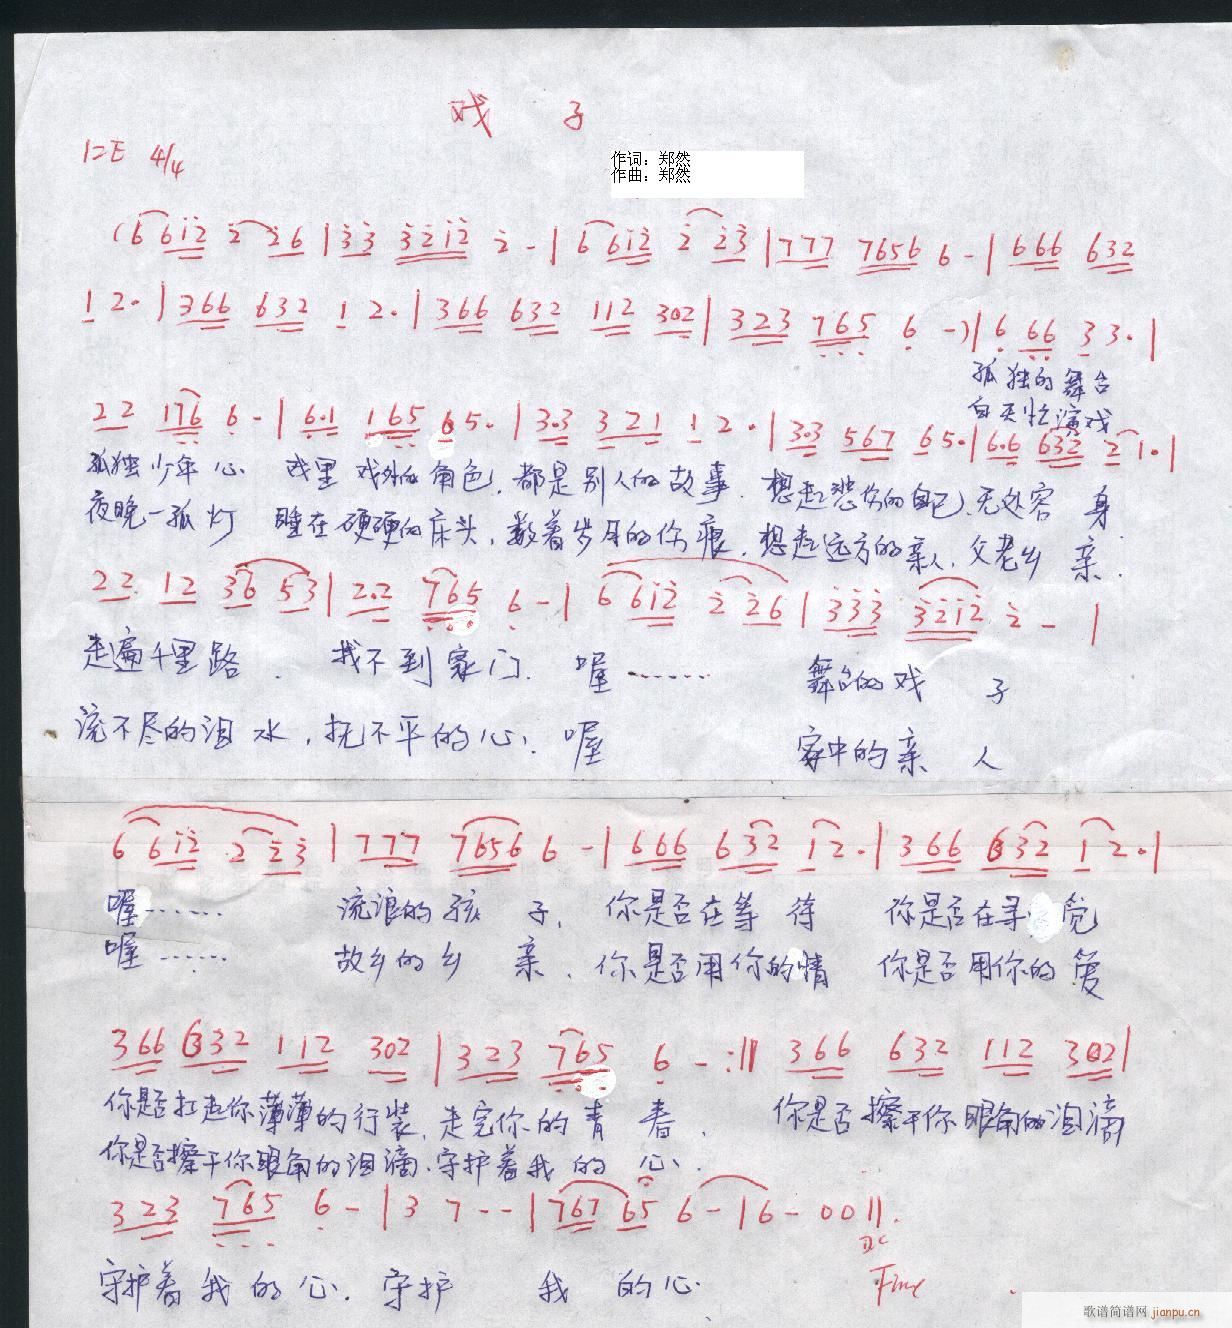 戏 子
1=E 4/4
作词：郑然
作曲：郑然
(6 612 2 26 | 33 3212 2 - | 6 612 2 23 | 777 7656 6 - | 666 632
1 2. | 366 632 1 2. | 366 632 112 302 | 323 765 6 -) | 6 66 3 3. |
孤独的舞台
白天忙演戏
22 176 6 - | 6.1 165 6 5. | 3.3 321 1 2. | 3.3 567 65. | 6.6 632 2 1. |
孤独少年心 戏里戏外的角色，都是别人的故事．想起悲伤的自己、无处容 身
夜晚一孤灯 睡在硬硬的床头，数着岁月的伤痕．想起远方的亲人，父老乡 亲．
22 12 36 53 | 2.2 765 6 - | 6 612 2 26 | 333 3212 2 - |
走遍千里路． 找不到家门． 喔…… 舞台的戏 子
流不尽的泪水，抚不平的心． 喔 家中的亲 人
6 612 2 23 | 777 7656 6 - | 666 632 1 2. | 366 632 1 2. |
喔…… 流浪的孩 子， 你是否在等 待 你是否在寻 觅
喔…… 故乡的乡 亲． 你是否用你的情 你是否用你的爱
366 632 112 302 | 323 765 6 - :|| 366 632 112 302 |
你是否扛起你薄薄的行装，走完你的青 春， 你是否擦干你眼角的泪滴
你是否擦干你眼角的泪滴．守护着我的 心．
323 765 6 - | 3 7 - - | 767 65 6 - | 6 - 0 0 ||.
D.C
守护着我的心．守护 我 的心
Fine
歌谱简谱网 jianpu.cn